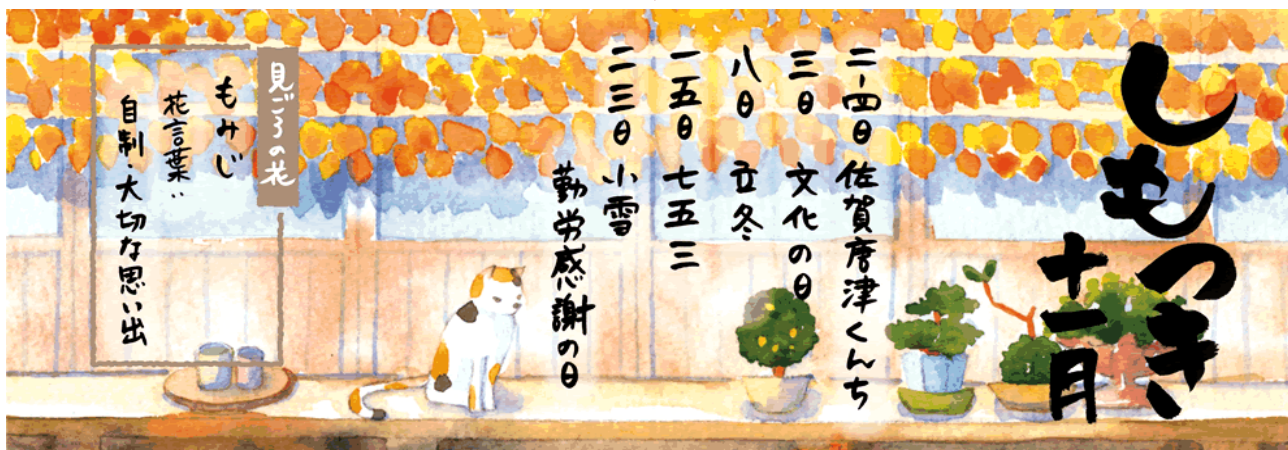 しもつき
十一月
二-四日 佐賀唐津くんち
三日 文化の日
八日 立冬
一五日 七五三
二三日 小雪
勤労感謝の日
見ごろの花
もみじ
花言葉:
自制・大切な思い出